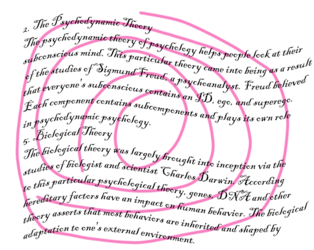 2. The Psychodynamic Theory
The psychodynamic theory of psychology helps people look at their
subconscious mind. This particular theory came into being as a result
of the studies of Sigmund Freud, a psychoanalyst. Freud believed
that everyone's subconscious contains an ID, ego, and superego.
Each component contains subcomponents and plays its own role
in psychodynamic psychology.
5. Biological Theory
The biological theory was largely brought into inception via the
studies of biologist and scientist Charles Darwin. According
to this particular psychological theory, genes, DNA and other
hereditary factors have an impact on human behavior. The biological
theory asserts that most behaviors are inherited and shaped by
adaptation to one's external environment.